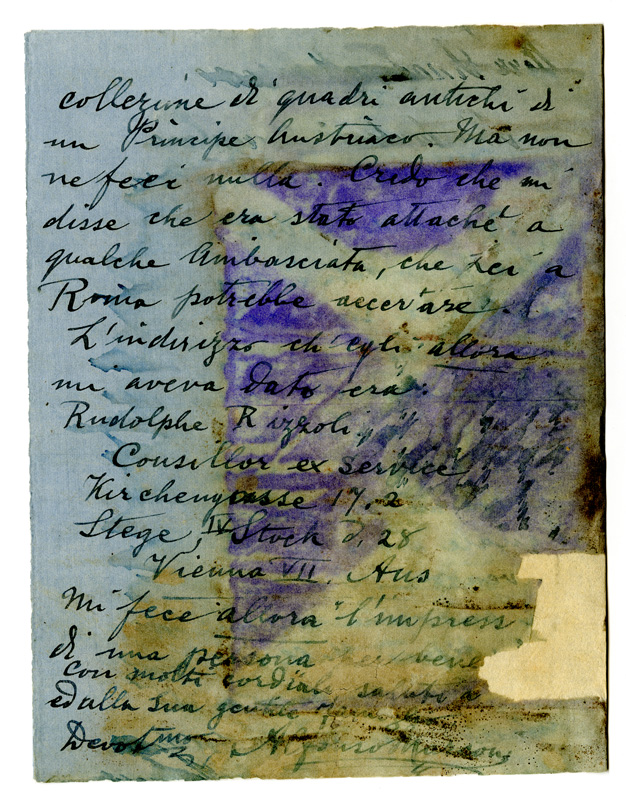 collezione di quadri antichi di
un Principe Austriaco. Ma non
ne feci nulla. Credo che mi
disse che era stato attaché a
qualche Ambasciata, che Lei a
Roma potrebbe accertare.
L'indirizzo ch'egli allora
mi aveva dato era:
Rudolphe Rizzoli
Consillor ex service
Kirchengasse 17, 2
Stege, IV Stock d, 28
Vienna VII, Aus
Mi fece allora l'impress
di una persona bene
con molti cordiali saluti a
ed alla sua gentile
Devotmo Alfonso